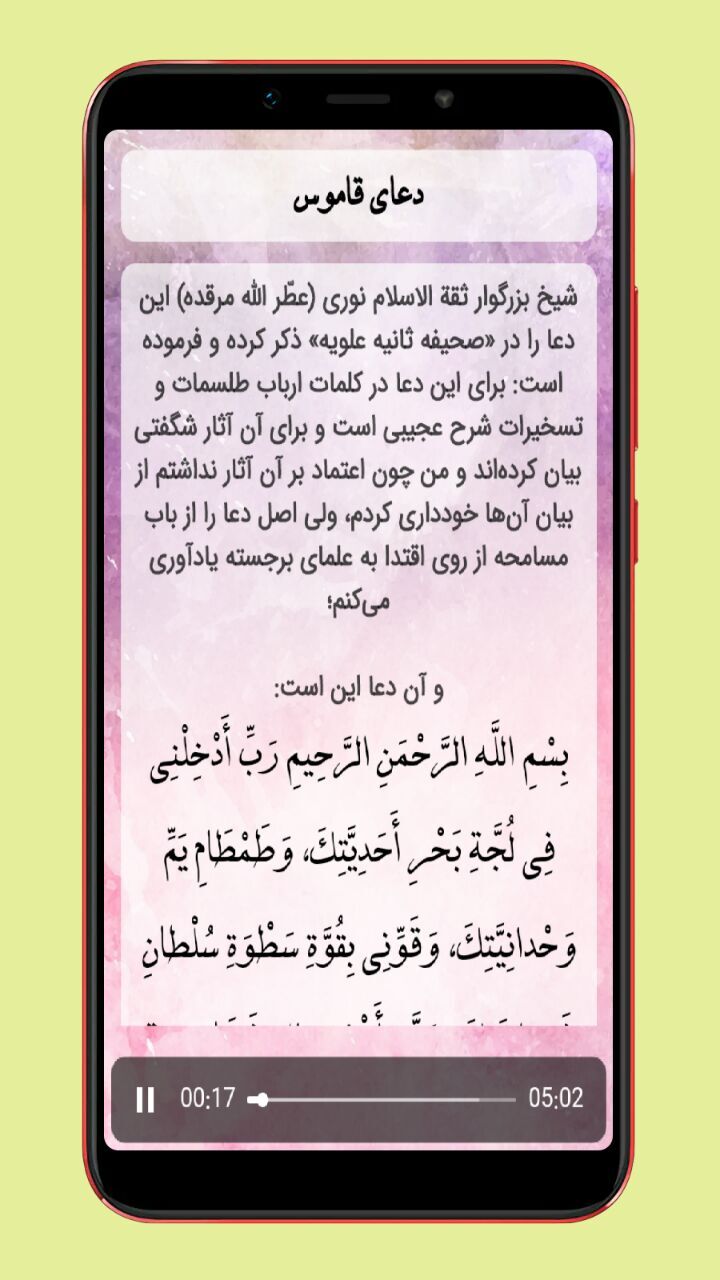 دعای قاموس
شیخ بزرگوار ثقة الاسلام نوری (عطّر الله مرقده) این
دعا را در «صحیفه ثانیه علویه» ذکر کرده و فرموده
است: برای این دعا در کلمات ارباب طلسمات و
تسخیرات شرح عجیبی است و برای آن آثار شگفتی
بیان کرده‌اند و من چون اعتماد بر آن آثار نداشتم از
بیان آن‌ها خودداری کردم، ولی اصل دعا را از باب
مسامحه از روی اقتدا به علمای برجسته یادآوری
می‌کنم؛
و آن دعا این است:
بِسْمِ اللَّهِ الرَّحْمَنِ الرَّحِيمِ رَبِّ أَدْخِلْنِی
فِی لُجَّةِ بَحْرِ أَحَدِیَّتِكَ، وَطَمْطَامِ یَمِّ
وَحْدانِیَّتِكَ، وَقَوِّنِی بِقُوَّةِ سَطْوَةِ سُلْطانِ
00:17 05:02